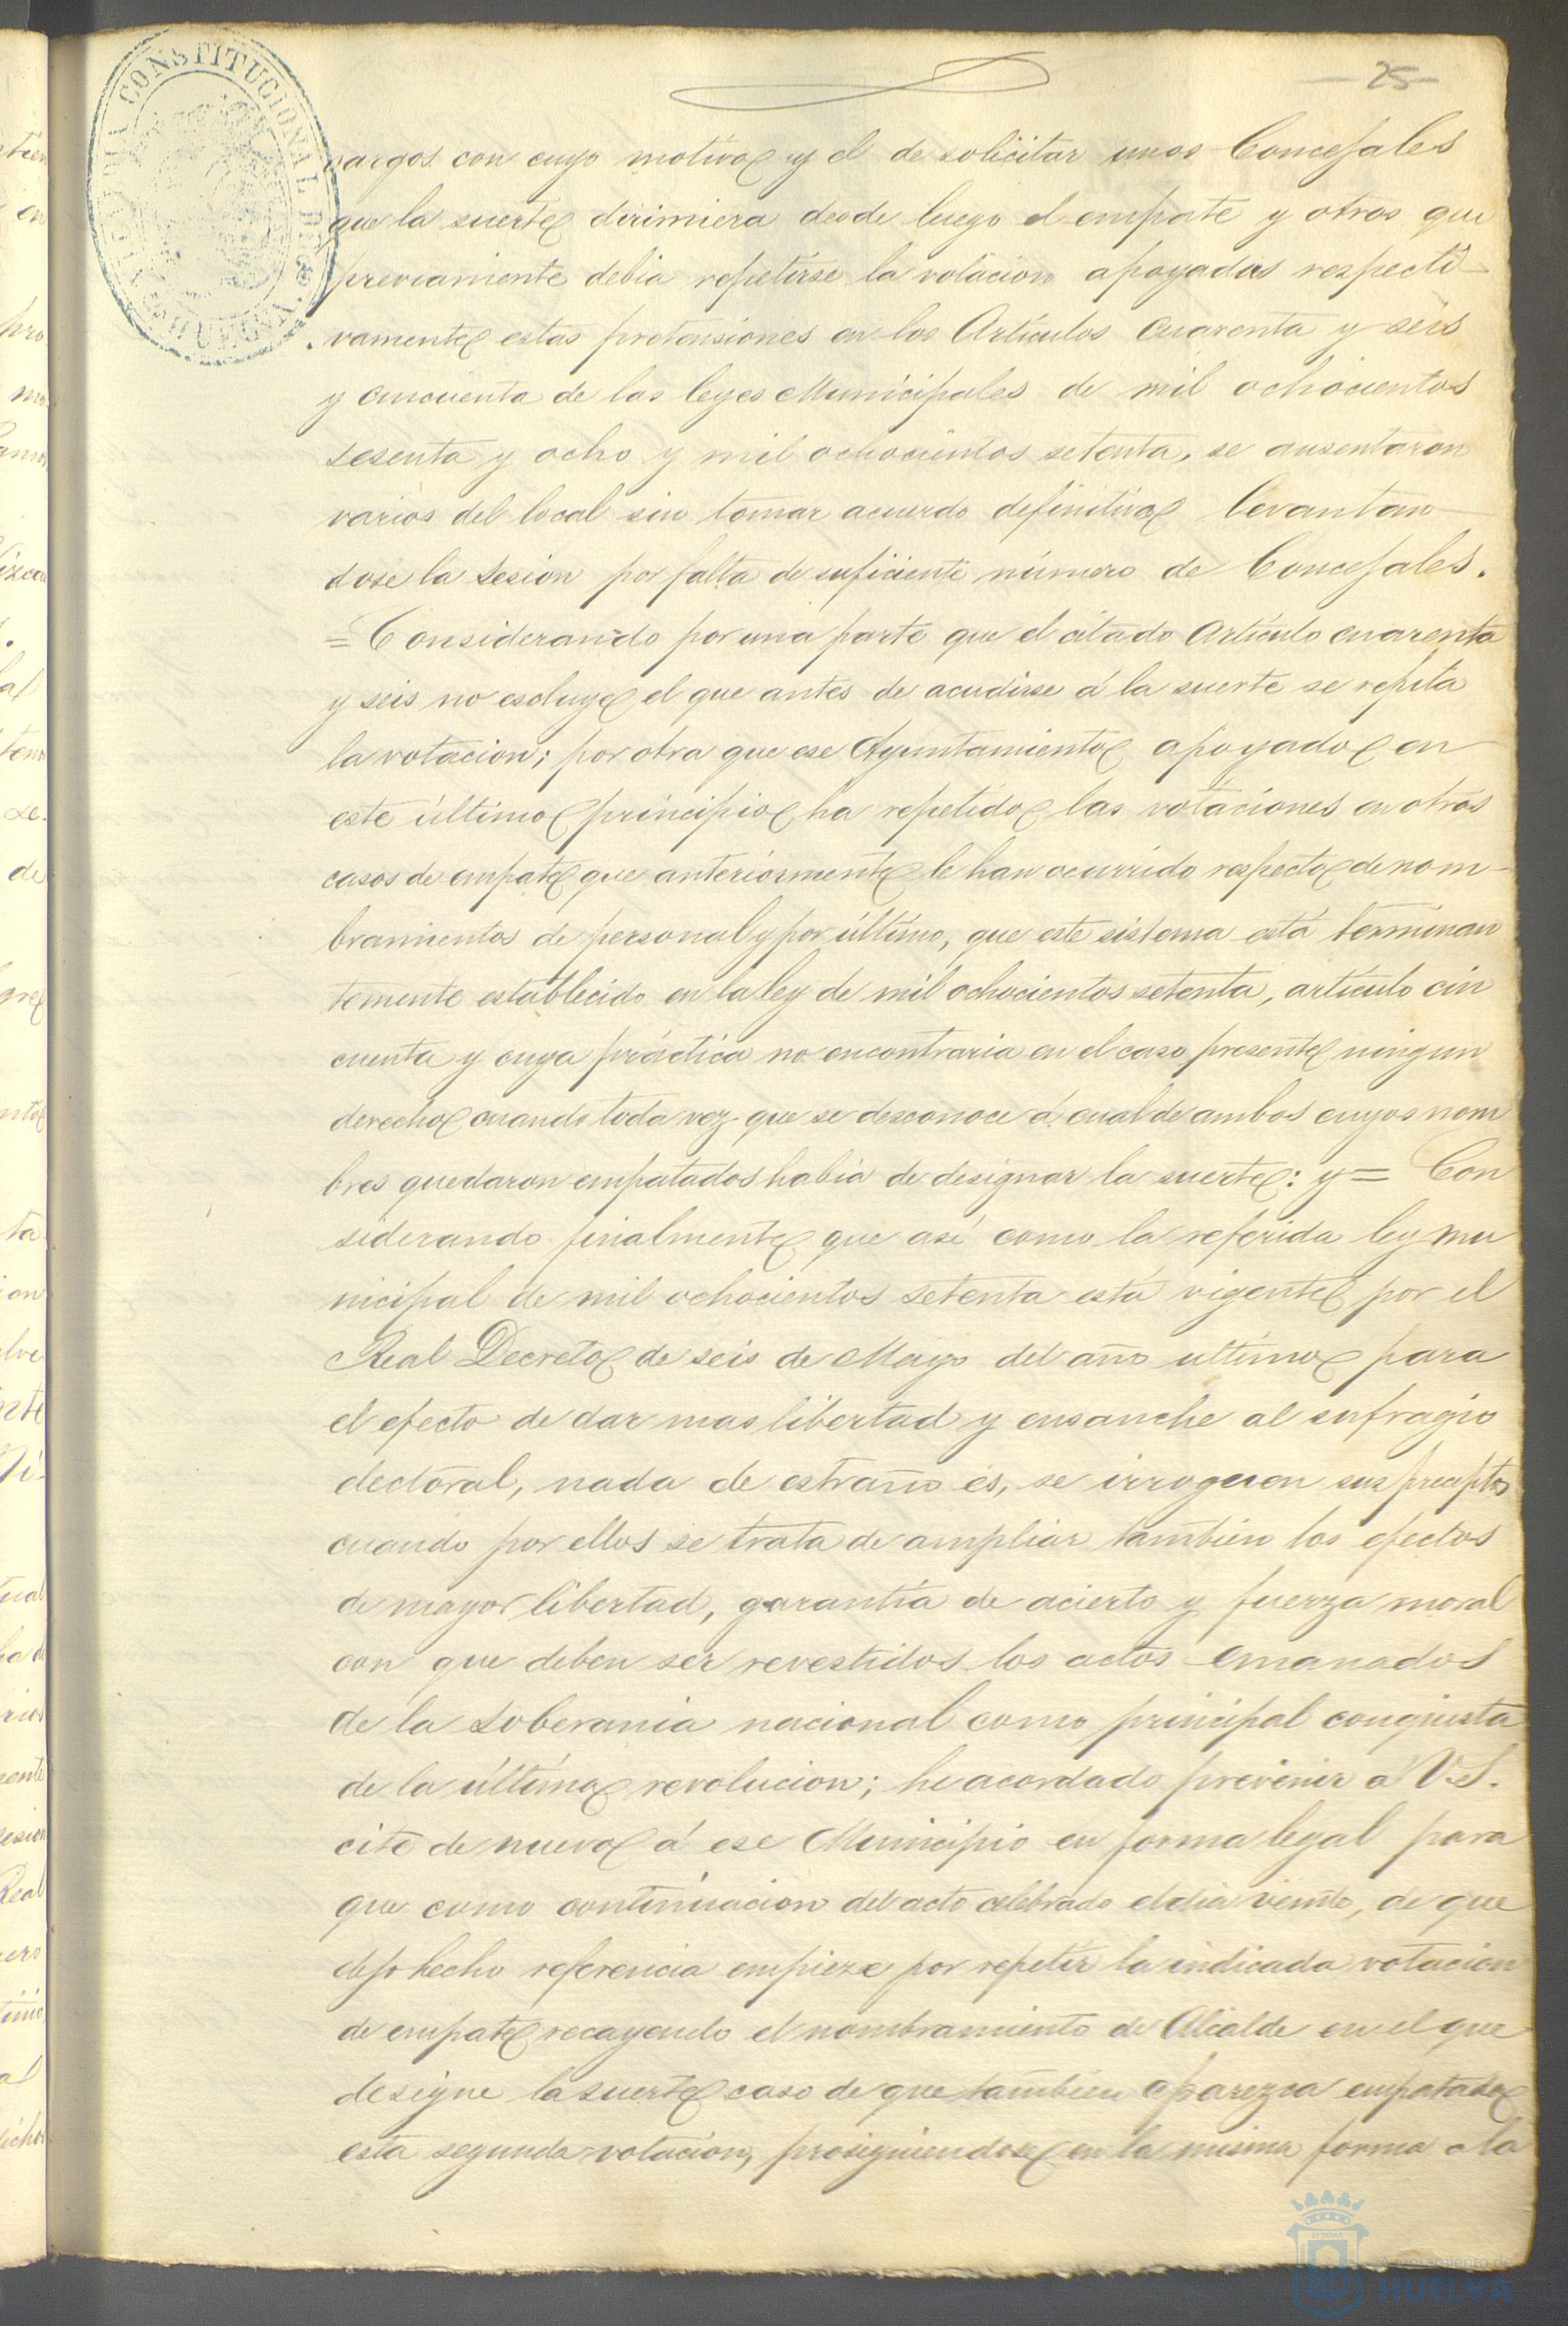 25
cargos con cuyo motivo y el de solicitar unos Concejales
que la suerte dirimiera desde luego el empate y otros que
previamente debia repetirse la votacion apoyadas respecti-
vamente estas pretensiones en los Artículos cuarenta y seis
y cincuenta de las leyes Municipales de mil ochocientos
sesenta y ocho y mil ochocientos setenta, se ausentaron
varios del local sin tomar acuerdo definitivo levantan-
dose la sesion por falta de suficiente número de Concejales.
= Considerando por una parte que el citado Artículo cuarenta
y seis no escluye el que antes de acudirse á la suerte se repita
la votacion; por otra que ese Ayuntamiento apoyado en
este último principio ha repetido las votaciones en otros
casos de empate que anteriormente le han ocurrido respecto de nom-
bramientos de personal y por último, que este sistema está terminan
temente establecido en la ley de mil ochocientos setenta, artículo cin
cuenta y cuya práctica no encontraria en el caso presente ningun
derecho cuando toda vez que se desconoce á cual de ambos cuyos nom
bres quedaron empatados habia de designar la suerte: y = Con
siderando finalmente que así como la referida ley mu
nicipal de mil ochocientos setenta está vigente por el
Real Decreto de seis de Mayo del año ultimo para
el efecto de dar mas libertad y ensanche al sufragio
electoral, nada de estraño es, se irroguen sus preceptos
cuando por ellos se trata de ampliar tambien los efectos
de mayor libertad, garantía de acierto y fuerza moral
con que deben ser revestidos los actos emanados
de la soberania nacional como principal conquista
de la última revolucion; he acordado prevenir á V.S.
cite de nuevo á ese Municipio en forma legal para
que como continuacion del acto celebrado el dia veinte, de que
dejo hecho referencia empieze por repetir la indicada votacion
de empate recayendo el nombramiento de Alcalde en el que
designe la suerte caso de que tambien aparezca empatada
esta segunda votacion, prosiguiendose en la misma forma a la
CONSTITUCIONAL DE
Ayuntamiento de
HUELVA